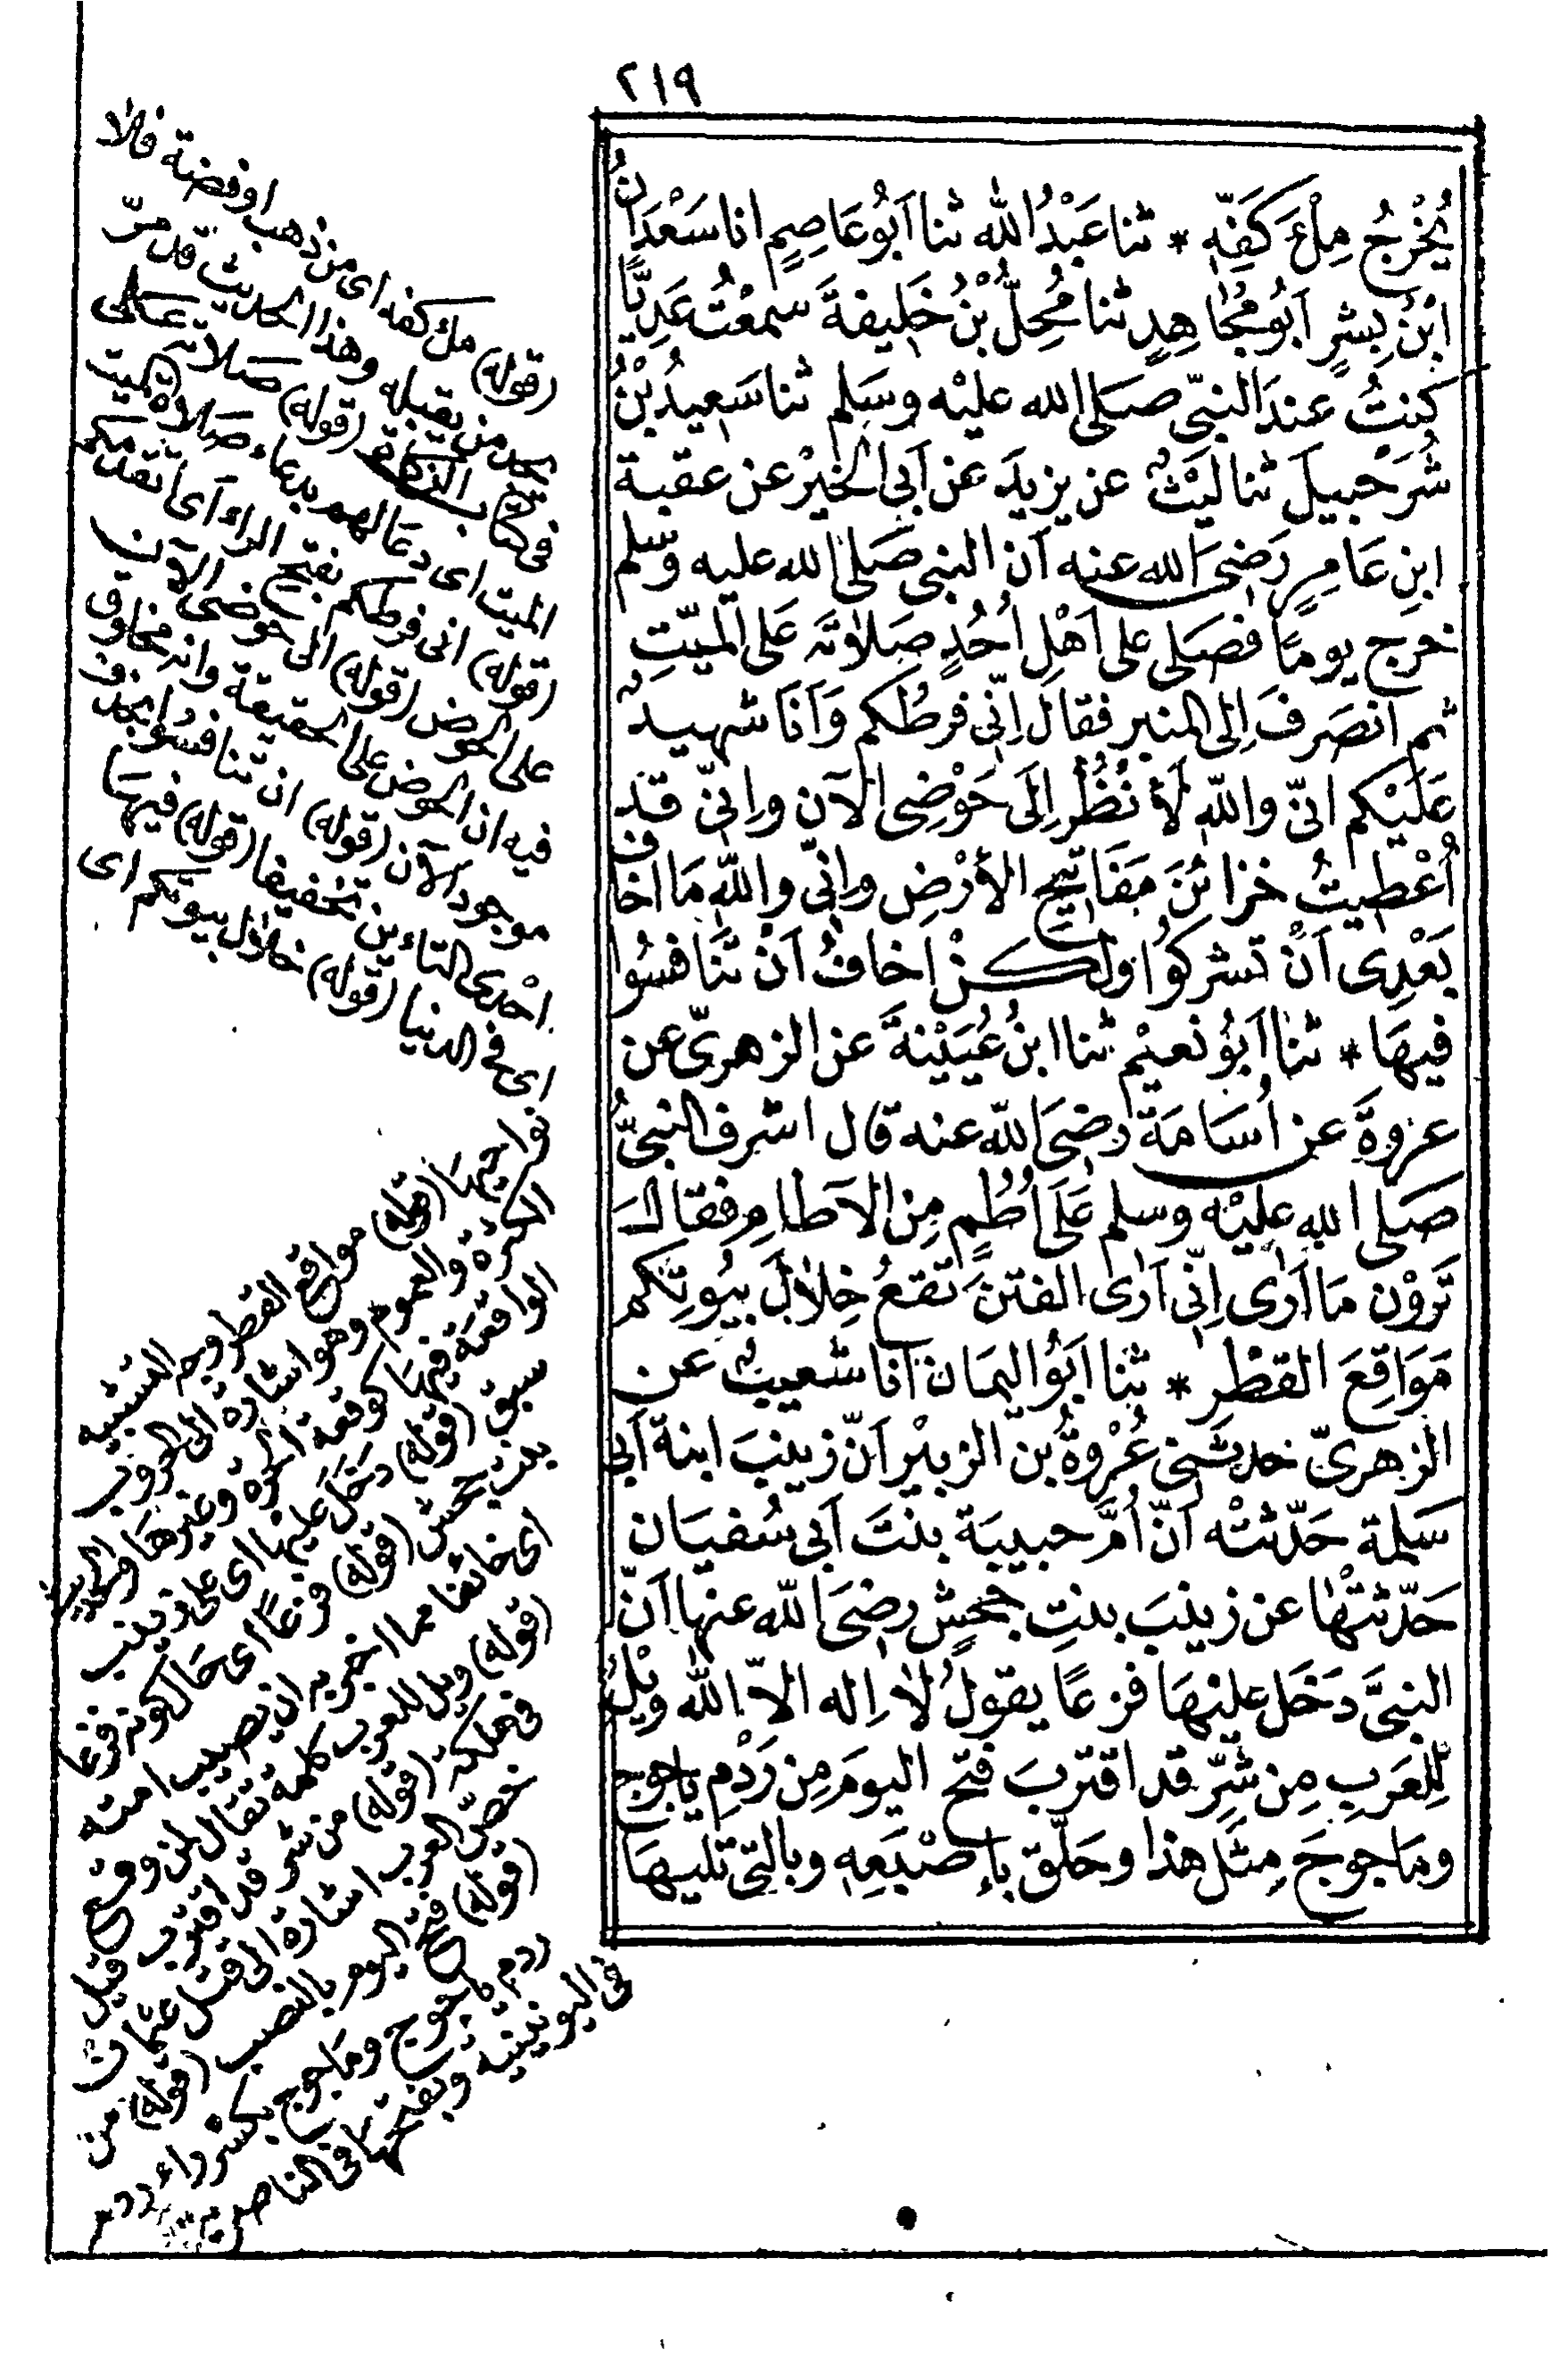 ٢١٩
يُخْرِجُ مِلْءَ كَفِّهِ * ثنا عَبْدُ الله ثنا اَبُو عَاصِمٍ انا سَعْدَانُ
ابْنُ بِشْرٍ اَبُو مُجَاهِدٍ ثنا مُحِلُّ بْنُ خَلِيفَةَ سمعْتُ عَدِيًّا
كنتُ عندَ النبىّ صَلى الله عليْه وسَلم ثنا سَعِيدُ بْنُ
شُرَحْبيلَ ثنا لَيْثٌ عن يزيدَ عَن اَبى الخيْر عن عقبة
ابنِ عَامِرٍ رَضىَ الله عنه اَن النبى صَلى الله عليه وسلم
خرج يومًا فصَلى على اَهْلِ اُحُدٍ صَلاتَه عَلى الميّتِ
ثم انصَرفَ اِلى المنبر فقال اِنّى فرطُكم وَاَنَا شهيدٌ
عَلَيْكم انّى والله لَأَنْظُرُ اِلَى حَوْضِى الآن وانّى قد
اُعْطِيتُ خزائنَ مَفَاتيحِ الأرْضِ وانّى والله مَا اخاف
بَعْدِى اَنْ تشركوا ولكنْ اَخافُ اَنْ تَنَافسُوا
فيهَا * ثنا اَبُو نعيْم ثنا ابنُ عُيَيْنةَ عن الزهرىّ عن
عروةَ عن اُسَامَة رَضىَ الله عنه قال اشرف النبىُّ
صَلى الله عليْه وسلم عَلَى اُطُمٍ مِن الآطامِ فقال
تَرَوْن مَا اَرَى اِنّى اَرَى الفتنَ تَقعُ خِلَالَ بيُوتِكم
مَوَاقِعَ القطْرِ * ثنا اَبُو اليمَان اَنا شعيبٌ عن
الزهرىّ حدثنى عُرْوةُ بن الزبيْر اَنّ زينبَ ابنة اَبى
سَلمة حَدّثتْه اَنّ اُمَّ حبيبَة بنتَ اَبى سُفيَان
حَدّثتْهَا عن زينبَ بنتِ جحْشٍ رضىَ الله عنها اَنّ
النبىَّ دَخَل عليْهَا فزعًا يقولُ لا اِله الاّ الله ويْلٌ
لِلعَرَبِ مِن شَرٍّ قد اقتربَ فتح اليومَ مِن رَدْمِ ياجوج
ومَاجوجَ مِثلُ هذا وحَلّق بإصْبَعِه وبالتى تليهَا
(قوله) ملء كفه اى من ذهب او فضة فلا
يجد من يقبله وهذا الحديث قد مرّ
فى كتاب الزكاة (قوله) صلاته على
الميت اى دعا لهم بدعاء صلاة الميت
(قوله) انى فرطكم بفتح الراء اى اتقدمكم
على الحوض (قوله) الى حوضى الآن
فيه ان الحوض على الحقيقة وانه مخلوق
موجود الآن (قوله) ان تنافسوا بحذف
احدى التاءين تخفيفا (قوله) فيها
اى فى الدنيا (قوله) خلال بيوتكم اى
نواحيها (قوله) مواقع القطر وجه التشبيه
الكثرة والعموم وهو اشارة الى الحروب
الواقعة فيها كوقعة الحرة وغيرها والحديث
سبق (قوله) دخل عليها اى على زينب
بنت جحش (قوله) فزعًا اى حال كونه فزعا
اى خائفا مما اخبر به ان يصيب امته
(قوله) ويل للعرب كلمة تقال لمن وقع
فى هلكة (قوله) من شر قد اقترب قيل
خصّ العرب اشارة الى قتل عثمان
(قوله) فتح اليوم بالنصب (قوله) من
ردم ياجوج وماجوج بكسر راء ردم
فى اليونينية وبفتحها فى الناصرية